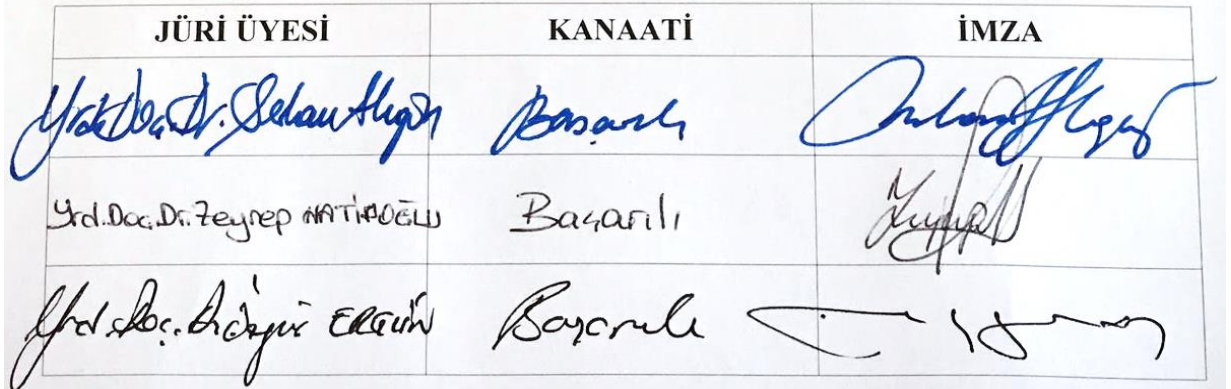 JÜRİ ÜYESİ KANAATİ İMZA
Yrd. Doç. Dr. Başarılı
Yrd. Doç. Dr. Zeynep HATİPOĞLU Başarılı
Yrd. Doç. Dr. Özgür ERGÜN Başarılı